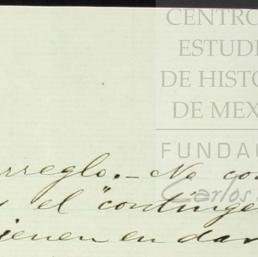 CENTRO
ESTUDI
DE HISTO
DE MEX
FUNDAC
Carlos
arreglo.- No co
el "continge
ienen en dar